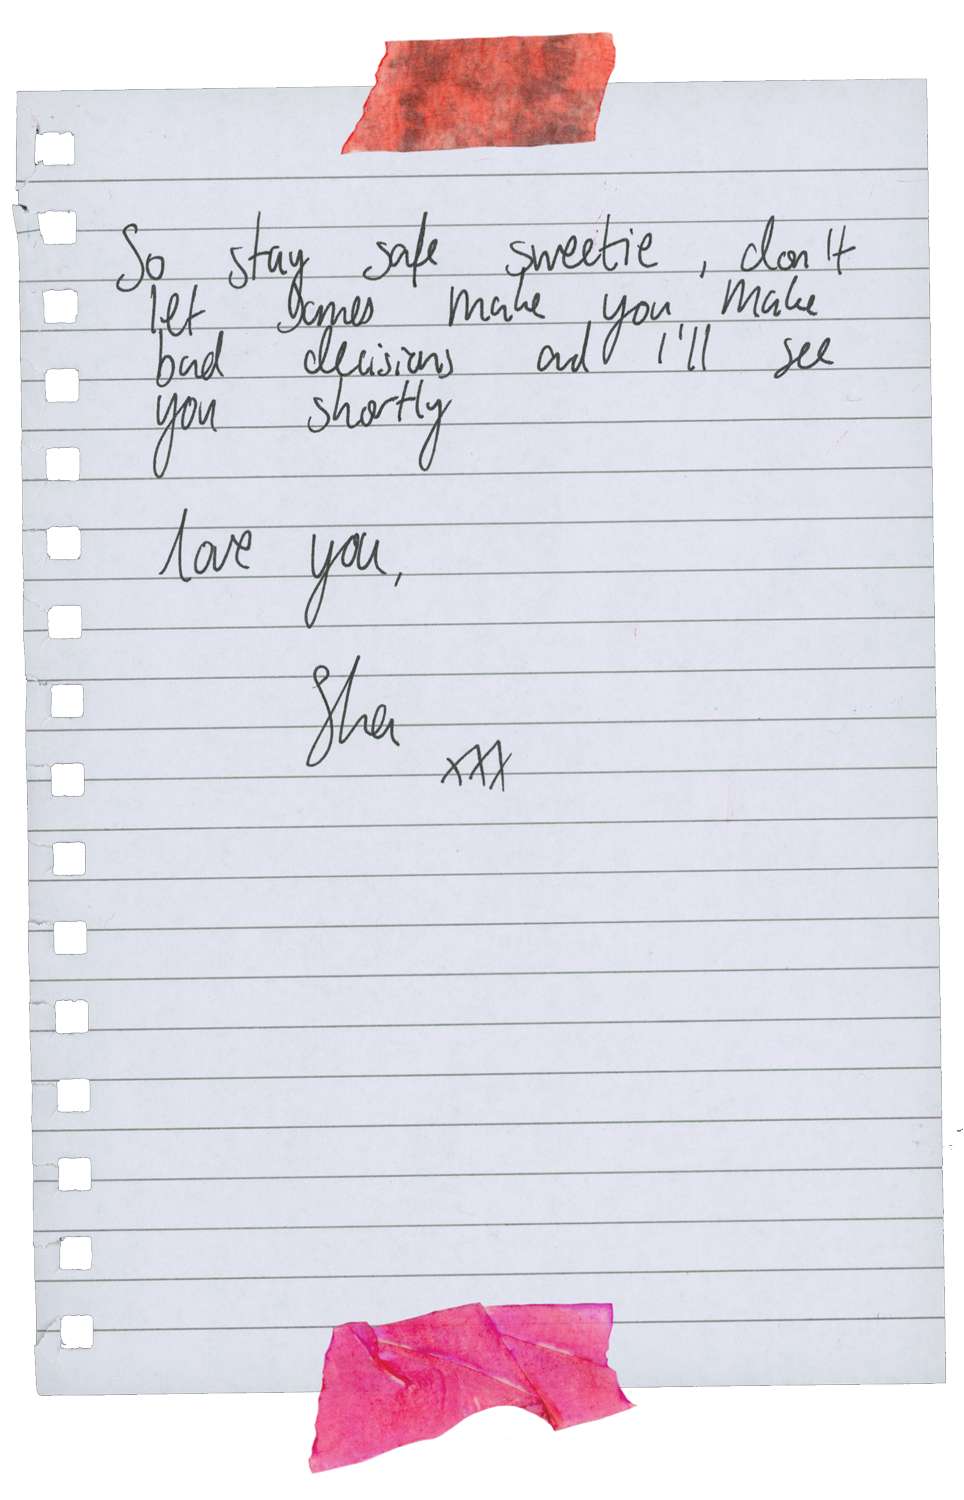 So stay safe sweetie, don't
let games make you make
bad decisions and I'll see
you shortly
love you,
Sher
xxx